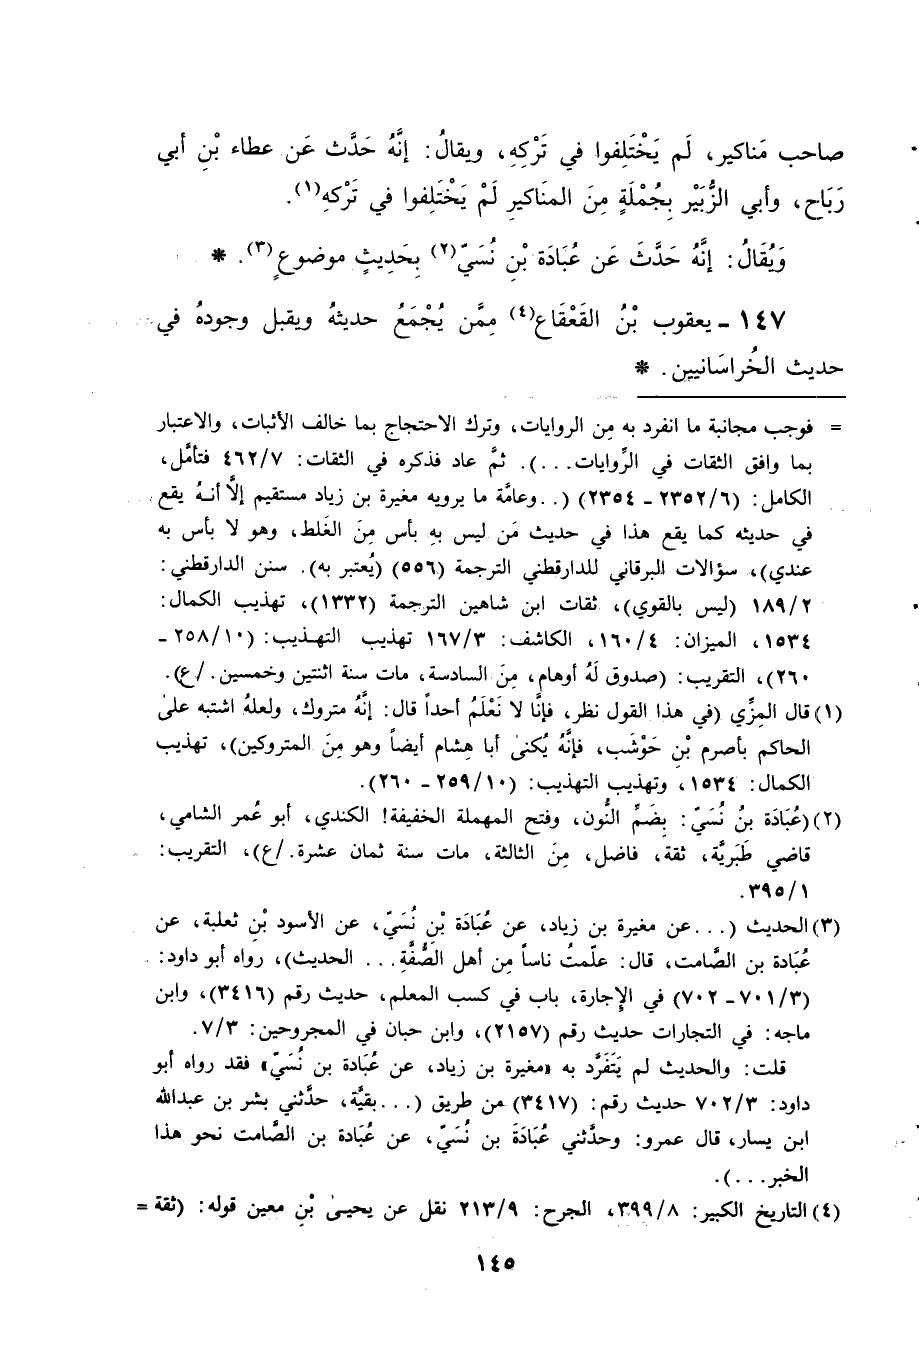 صاحب مَناكير، لَم يَخْتَلِفوا في تَرْكِهِ، ويقالُ: إنَّهُ حَدَّث عَن عطاء بْنِ أبي
رَبَاح، وأبي الزُّبَيْر بِجُمْلَةٍ مِنَ المَناكيرِ لَمْ يَخْتَلِفوا في تَرْكهِ(١).
وَيُقَالُ: إنَّهُ حَدَّثَ عَن عُبَادَة بْنِ نُسَيّ(٢) بِحَدِيثٍ موضوعٍ(٣). *
١٤٧ ـ يعقوب بْنُ القَعْقَاع(٤) مِمَّن يُجْمَعُ حديثهُ ويقبل وجودهُ في
حديث الخُراسَانيين. *
= فوجب مجانبة ما انفرد به مِن الروايات، وترك الاحتجاج بما خالف الأثبات، والاعتبار
بما وافق الثقات في الرِّوايات...). ثمَّ عاد فذكره في الثقات: ٤٦٢/٧ فتأمَّل،
الكامل: (٢٣٥٢/٦ ـ ٢٣٥٤) (..وعامَّة ما يرويه مغيرة بن زياد مستقيم إلاَّ أنهُ يقع
في حديثه كما يقع هذا في حديث مَن ليس بهِ بأس مِنَ الغَلط، وهو لا بأس به
عندي)، سؤالات البرقاني للدارقطني الترجمة (٥٥٦) (يُعتبر به). سنن الدارقطني:
١٨٩/٢ (ليس بالقوي)، ثقات ابن شاهين الترجمة (١٣٣٢)، تهذيب الكمال:
١٥٣٤، الميزان: ١٦٠/٤، الكاشف: ١٦٧/٣ تهذيب التهذيب: (٢٥٨/١٠ ـ
٢٦٠)، التقريب: (صدوق لَهُ أوهام، مِنَ السادسة، مات سنة اثنتين وخمسين./ع).
(١) قال المِزِّي (في هذا القول نظر، فإنَّا لا نَعْلَمُ أحداً قال: إنَّهُ متروك، ولعلهُ اشتبه علىٰ
الحاكم بأصرم بْنِ حَوْشَب، فإنَّهُ يُكنىٰ أبا هِشام أيضاً وهو مِنَ المتروكين)، تهذيب
الكمال: ١٥٣٤، وتهذيب التهذيب: (٢٥٩/١٠ ـ ٢٦٠).
(٢) (عُبَادَة بنُ نُسَيّ: بِضَمِّ النُّون، وفتح المهملة الخفيفة! الكندي، أبو عُمر الشامي،
قاضي طَبَرِيَّة، ثقة، فاضل، مِنَ الثالثة، مات سنة ثمان عشرة./ع)، التقريب:
٣٩٥/١.
(٣) الحديث (...عن مغيرة بن زياد، عن عُبَادَة بْنِ نُسَيّ، عن الأسود بْنِ ثعلبة، عن
عُبَادة بن الصَّامت، قال: علّمتُ ناساً مِن أهل الصُّفَّةِ... الحديث)، رواه أبو داود:
(٧٠١/٣ـ ٧٠٢) في الإِجارة، باب في كسب المعلم، حديث رقم (٣٤١٦)، وابن
ماجه: في التجارات حديث رقم (٢١٥٧)، وابن حبان في المجروحين: ٧/٣.
قلت: والحديث لم يَتَفَرَّد به «مغيرة بن زياد، عن عُبَادة بن نُسَيّ» فقد رواه أبو
داود: ٧٠٢/٣ حديث رقم: (٣٤١٧) من طريق (...بقيَّة، حدَّثني بشر بن عبدالله
ابن يسار، قال عمرو: وحدَّثني عُبَادَةَ بن نُسَيّ، عن عُبَادة بن الصَّامت نحو هذا
الخبر...).
(٤) التاريخ الكبير: ٣٩٩/٨، الجرح: ٢١٣/٩ نقل عن يحيىٰ بْنِ معين قوله: (ثقة =
١٤٥